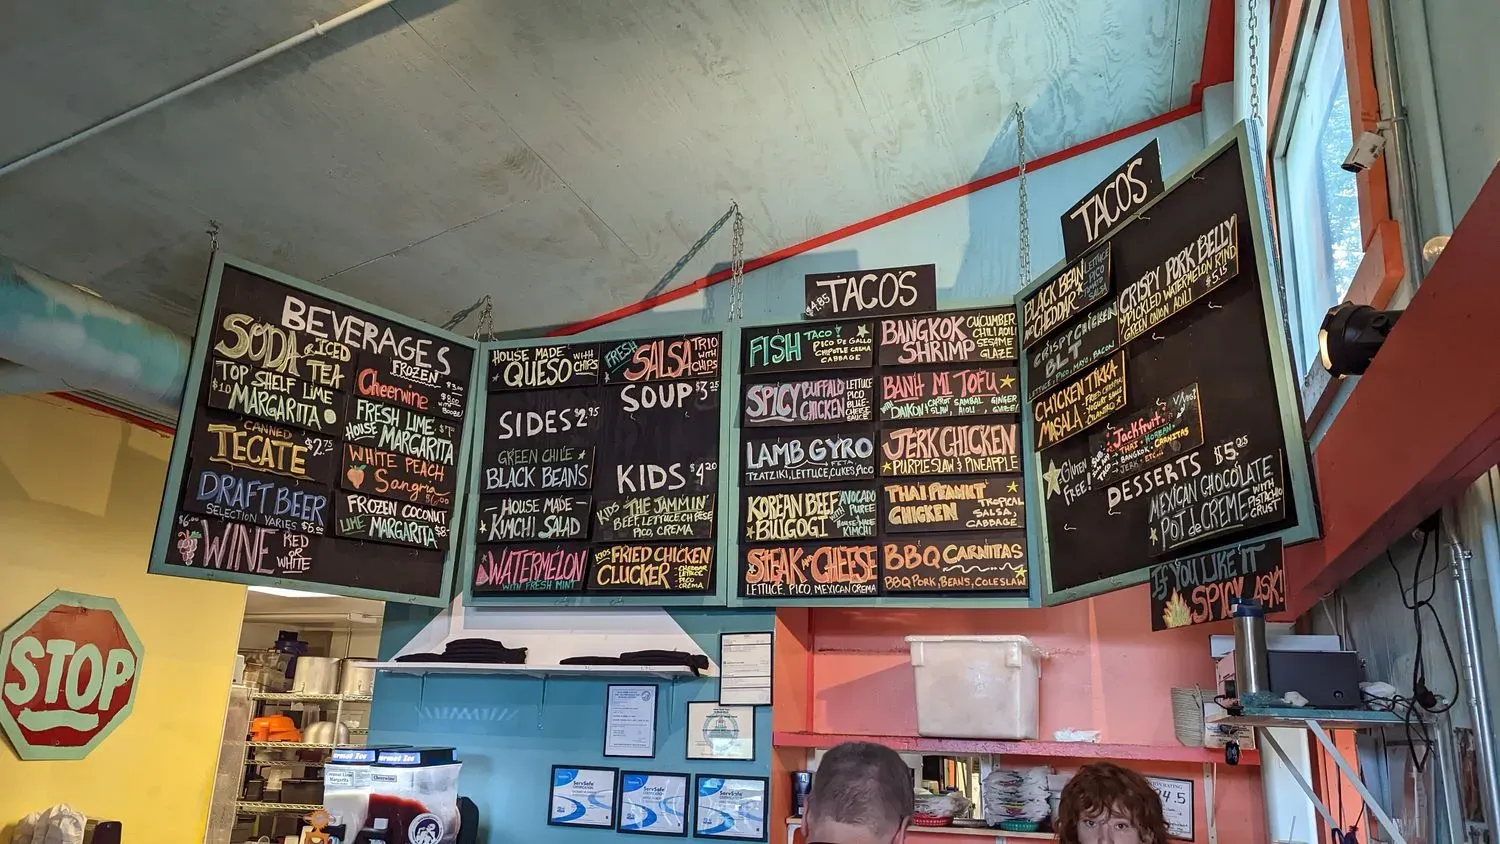 BEVERAGES
SODA & ICED TEA
TOP SHELF LIME
$10 MARGARITA
CANNED
TECATE $2.75
DRAFT BEER
SELECTION VARIES $5.00
$6.00 WINE RED OR WHITE
FROZEN
Cheerwine
FRESH LIME
HOUSE MARGARITA
WHITE PEACH
Sangria
FROZEN COCONUT
LIME MARGARITA
HOUSE MADE
QUESO WITH CHIPS
FRESH SALSA TRIO WITH CHIPS
SOUP $3.25
SIDES $2.95
GREEN CHILE
BLACK BEANS
HOUSE MADE
KIMCHI SALAD
WATERMELON
WITH FRESH MINT
KIDS $4.20
KIDS THE JAMMIN'
BEEF, LETTUCE, CHEESE
PICO, CREMA
KIDS FRIED CHICKEN
CLUCKER
CHEDDAR
LETTUCE
PICO
CREMA
$4.85 TACOS
FISH TACO
PICO DE GALLO
CHIPOTLE CREMA
CABBAGE
SPICY BUFFALO CHICKEN
LETTUCE
PICO
BLUE-
CHEESE
SAUCE
LAMB GYRO
TZATZIKI, LETTUCE, CUKES, PICO
KOREAN BEEF
BULGOGI
WITH
AVOCADO
PUREE
HOUSE-MADE
KIMCHI
STEAK AND CHEESE
LETTUCE, PICO, MEXICAN CREMA
BANGKOK
SHRIMP
CUCUMBER
CHILI AIOLI
SESAME
GLAZE
BANH MI TOFU
WITH DAIKON CARROT SLAW SAMBAL AIOLI GINGER GLAZE
JERK CHICKEN
PURPLE SLAW & PINEAPPLE
THAI PEANUT
CHICKEN
TROPICAL
SALSA,
CABBAGE
BBQ CARNITAS
BBQ PORK, BEANS, COLESLAW
TACOS
BLACK BEAN
AND CHEDDAR
LETTUCE
PICO
CRISPY PORK BELLY
PICKLED WATERMELON RIND
GREEN ONION AIOLI
$5.15
CRISPY CHICKEN
BLT
LETTUCE, PICO, MAYO, BACON
CHICKEN TIKKA
MASALA
GLUTEN
FREE!
Jackfruit
THAI KOREAN
BANGKOK CARNITAS
JERK ETC...
DESSERTS $5.25
MEXICAN CHOCOLATE
POT de CREME
WITH
PISTACHIO
CRUST
IF YOU LIKE IT
SPICY ASK!
STOP
Cheerwine
ServSafe
CERTIFICATION
ServSafe
CERTIFICATION
ServSafe
CERTIFICATION